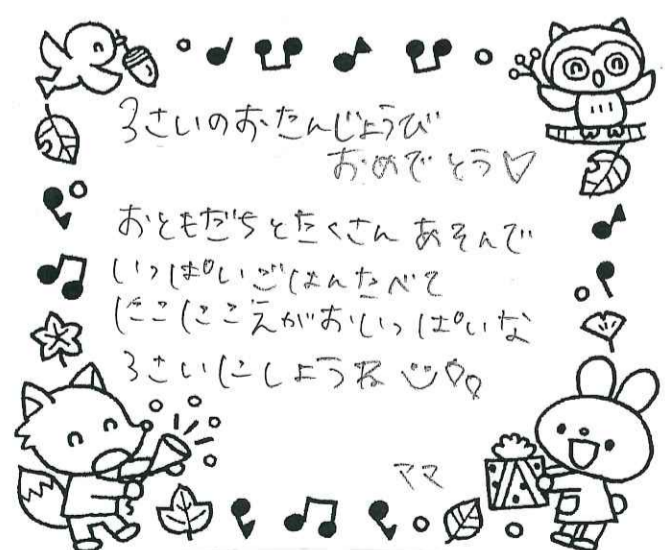 3さいのおたんじょうび
おめでとう♡
おともだちとたくさんあそんで
いっぱいごはんたべて
にこにこえがおいっぱいな
3さいにしようね
ママ